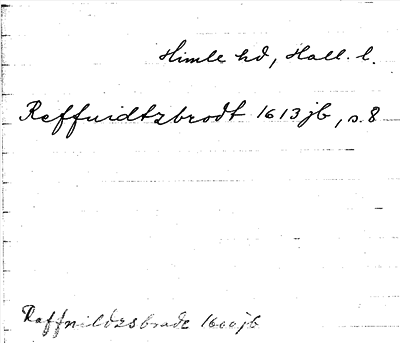 Himle hd, Hall. l.
Reffnidtzbrodt 1613 jb, s. 8
Raffnildzsbrode 1600 jb